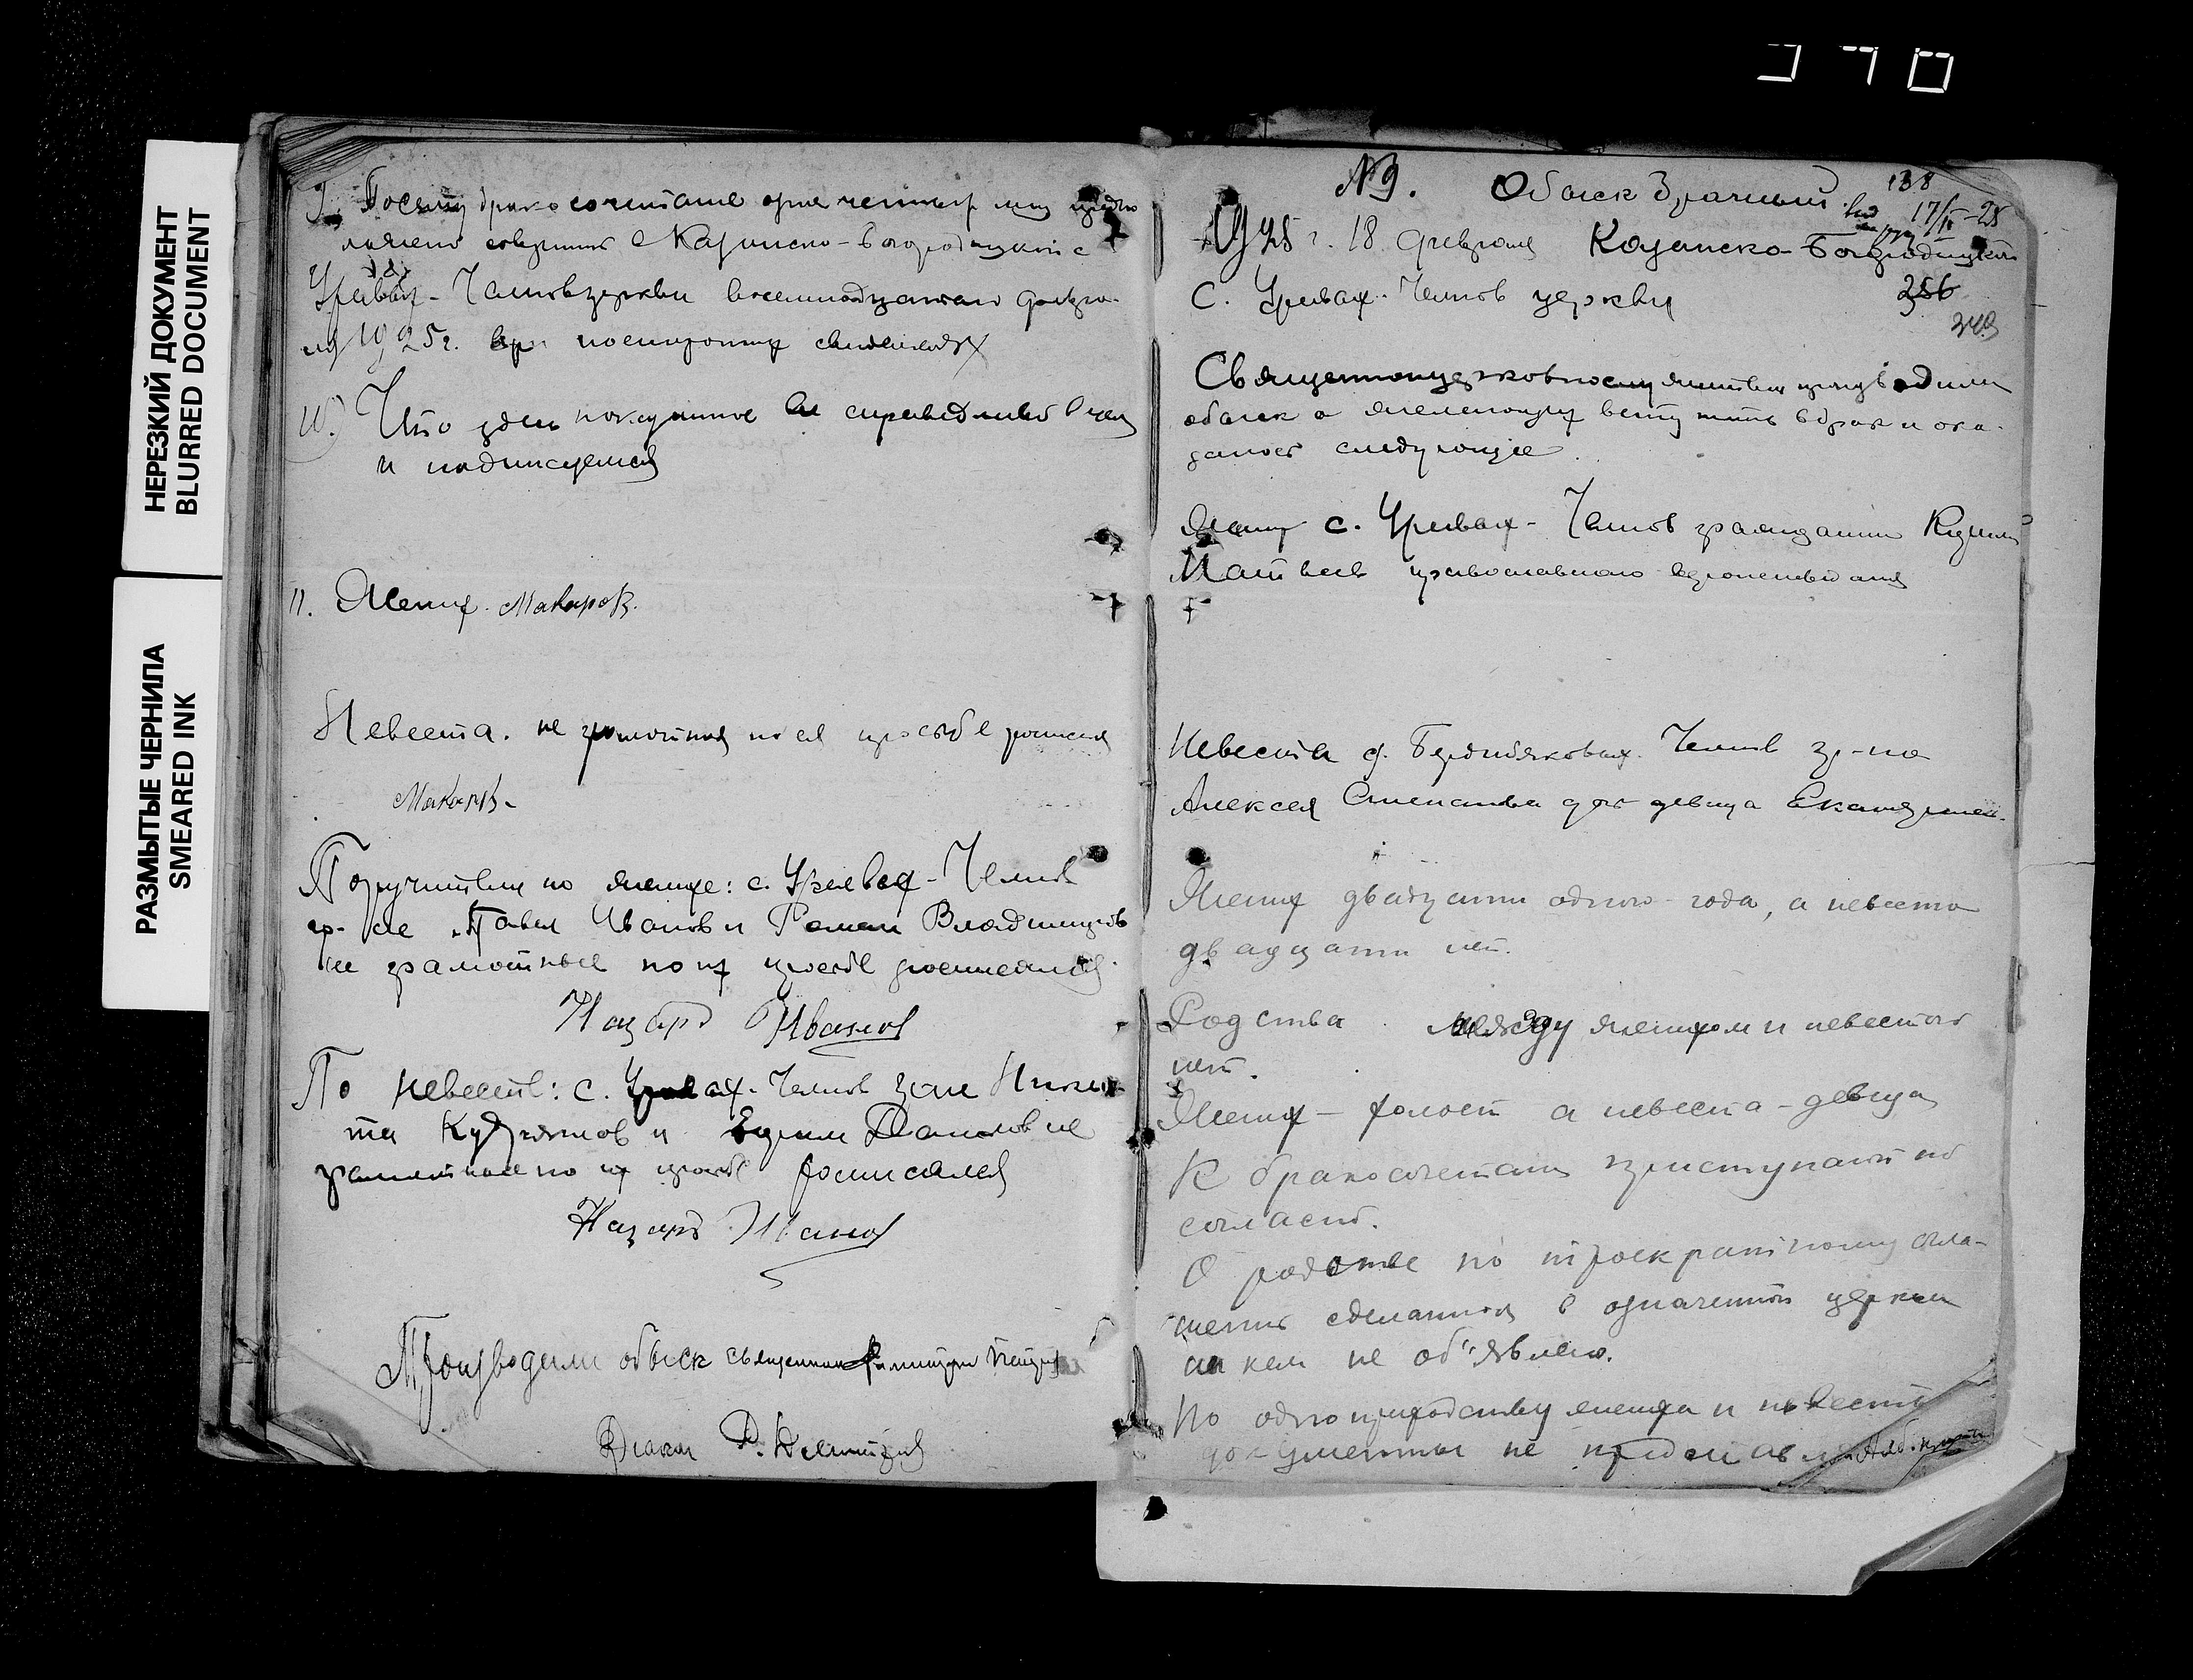 НЕРЕЗКИЙ ДОКУМЕНТ
BLURRED DOCUMENT
РАЗМЫТЫЕ ЧЕРНИЛА
SMEARED INK
9. Посему бракосочетание означенных лиц предпо
ложено совершить в Казанско-Богородицкой с
Уреевых-Челнов церкви восемнадцатого февра-
ля 1925 г. при посторонних свидетелях
10.) Что здесь показанное все справедливо в чем
и подписуемся
11. Жених. Макаров.
Невеста. не грамотная по ея просьбе росписался
Макаров.
Поручители по женихе: с. Уреевых-Челнов
гр-не Павел Иванов и Роман Владимиров
не грамотные по их просьбе росписался
Назаръ Иванов
По невесте: с. Уреевых-Челнов гр-не Ники
та Кудряшов и Данилов не
грамотные по их просьбе росписался
Назаръ Иванов
Производили обыск священник
Дьякон
№9. Обыск Брачный 138
17/II-25
1925 г. 18 февраля Казанско-Богородицкой
С. Уреевых-Челнов церкви 256
349
Священноцерковнослужители производили
обыск о желающих вступить в брак и ока-
залось следующее.
Жених с. Уреевых-Челнов гражданин
Матвеев православного вероисповедания
Невеста д. Бердибяковых Челнов гр-на
Алексея Степанова дочь девица Екатерина.
Жених двадцати одного года, а невеста
двадцати лет.
Родства между женихом и невестой
нет.
Жених - холост а невеста - девица
К бракосочетанию приступают по
согласию.
О родстве по троекратному огла-
шению сделанному в означенной церкви
ни кем не об'явлено.
По жениха и невесты
документы не